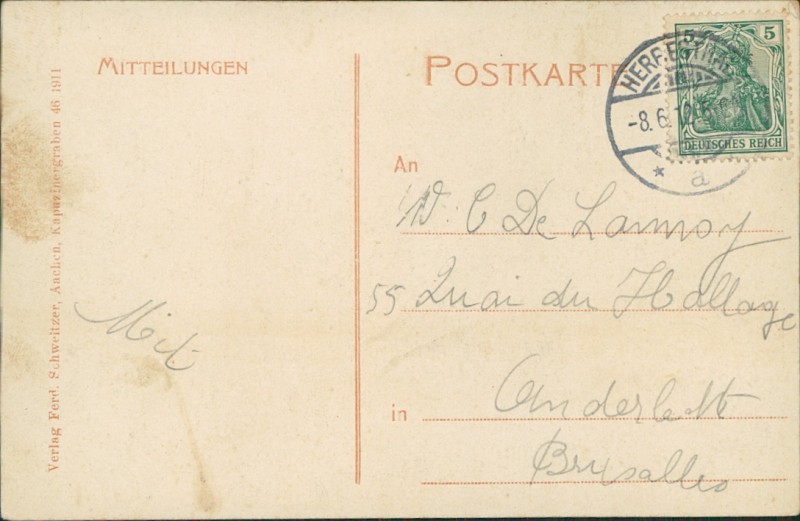 MITTEILUNGEN
POSTKARTE
5
DEUTSCHES REICH
-8.6.12
* a
An
De Lannoy
55 Quai du Hallage
in
Anderlecht
Bruxelles
Verlag Ferd. Schweitzer, Aachen, Kapuzinergraben 46 1911